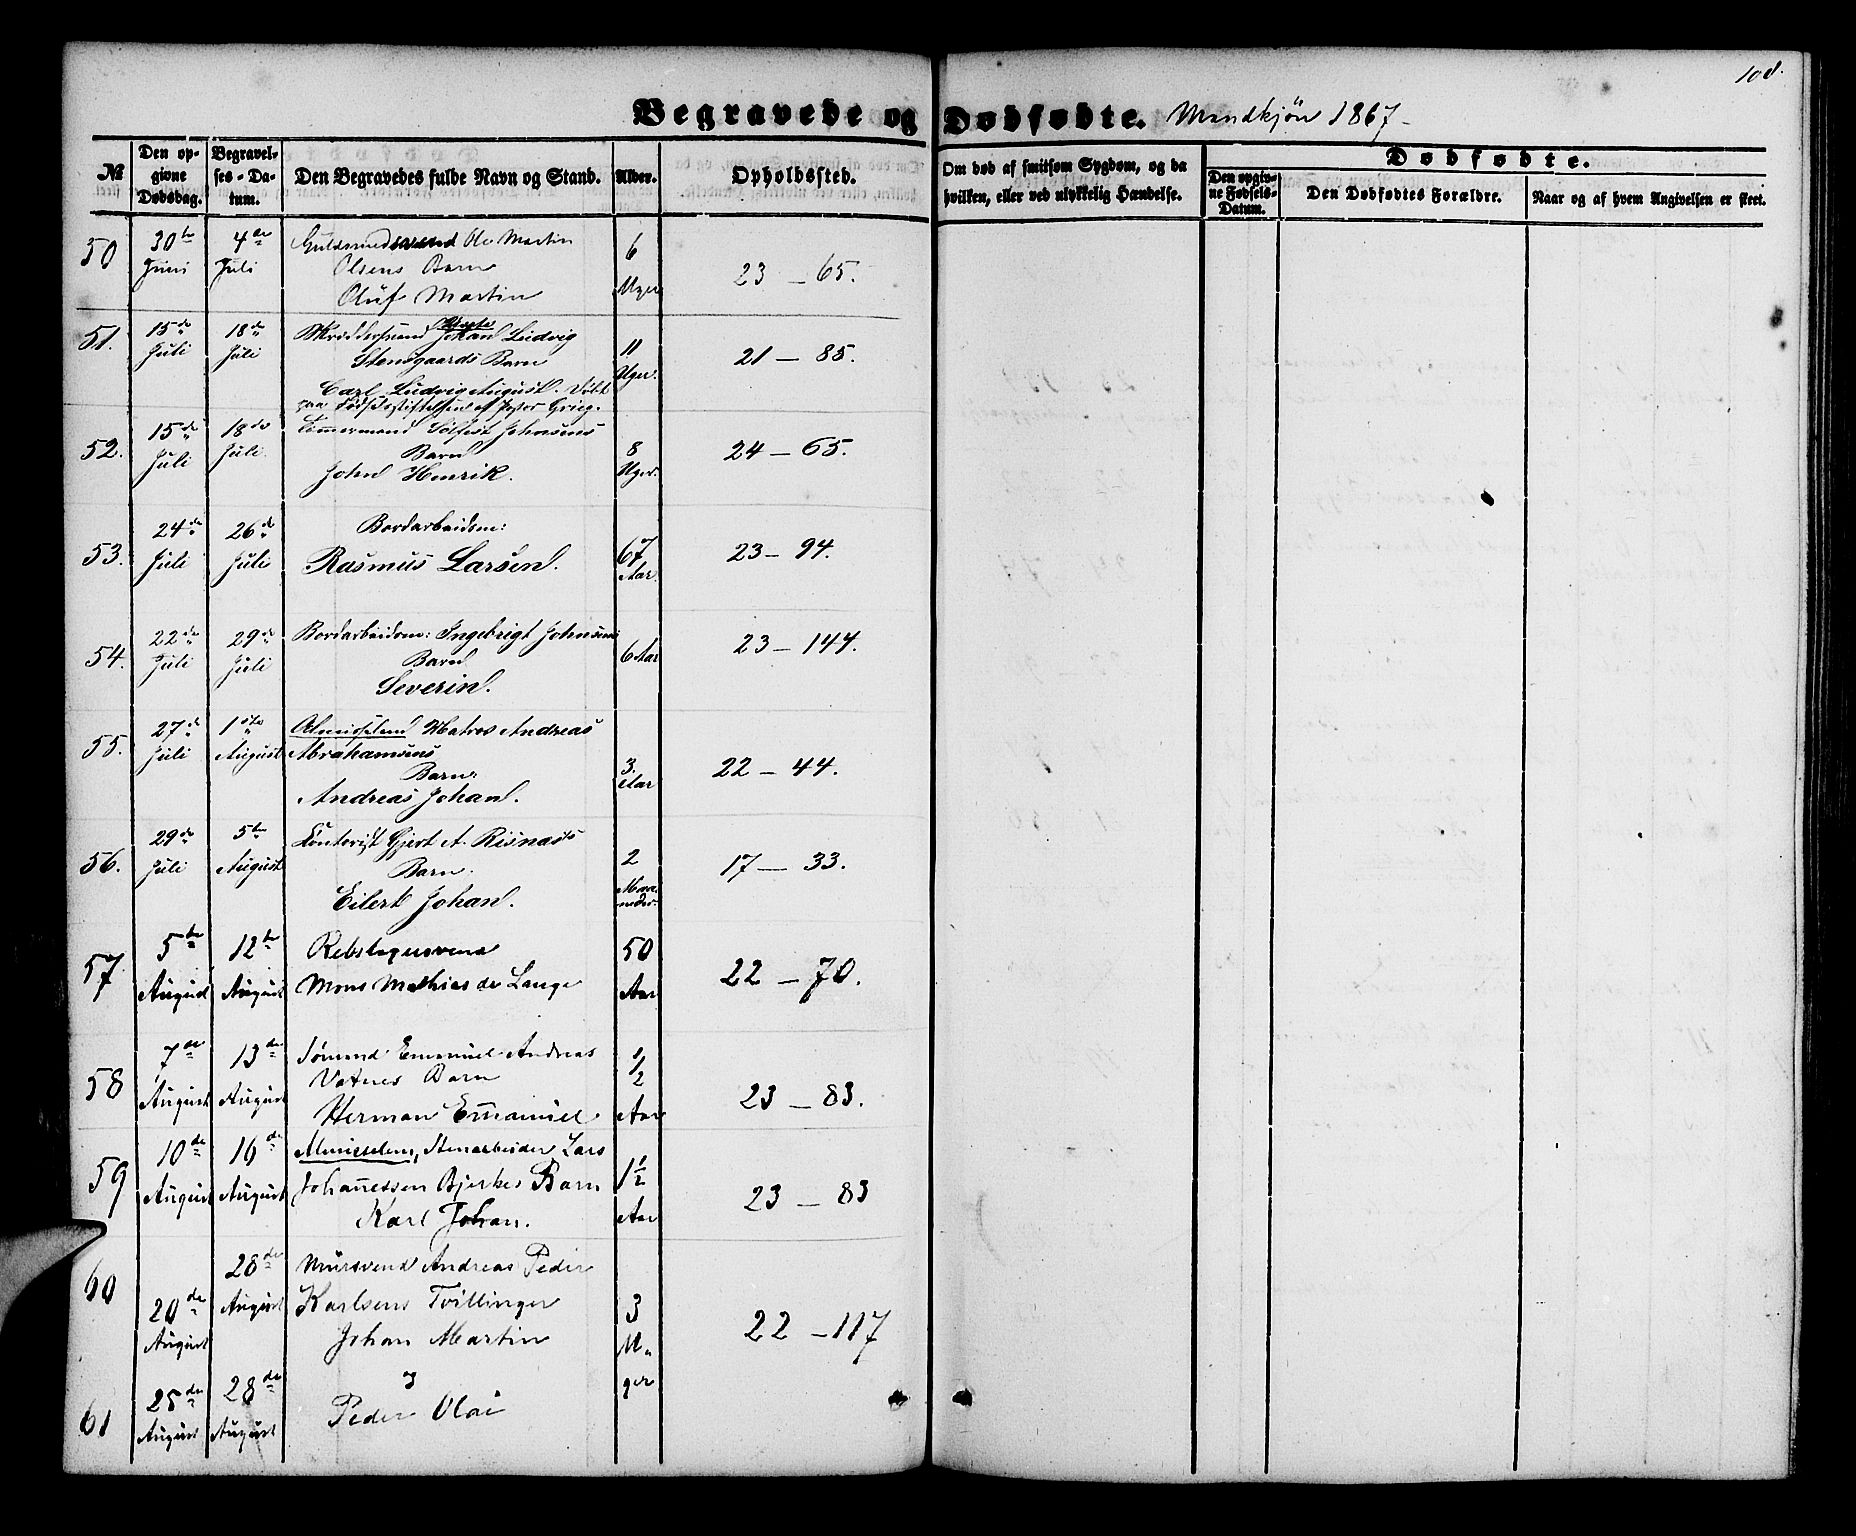 108.
Begravede og Dødfødte. Mandkjön 1867
№ Den opgivne Dødsdag. Begravelses-Datum. Den Begravedes fulde Navn og Stand. Alder. Opholdssted. Om død af smitsom Sygdom, og da hvilken, eller ved ulykkelig Hændelse. Dødfødte. Den opgivne Fødsels-Datum. Den Dødfødtes Forældre. Naar og af hvem Angivelsen er skeet.
50 30te Juni 4de Juli Guldsmedsvend Ole Martin
Olsens Barn
Oluf Martin
6 Uger 23 – 65.
51. 15de Juli 18de Juli Skræddersvend Johan Ludvig
Stensgaards Barn
Carl Ludvig August. Døbt
paa Fødselsstiftelsen af Pastor Grieg.
11 Uger. 21 – 85.
52. 15de Juli 18de Juli Tømmermand Sølfest Johnsens
Barn
John Henrik.
8 Uger. 24 – 65.
53. 24de Juli 26de Juli Bordarbeidsm:
Rasmus Larsen.
67 Aar. 23 – 94.
54. 22de Juli 29de Juli Bordarbeidsm: Ingebrigt Johnsens
Barn
Severin.
6 Aar 23 – 144.
55. 27de Juli 1ste August Almisselem Matros Andreas
Abrahamsens
Barn:
Andreas Johan.
3. Aar 22 – 44.
56. 29de Juli 5te August Kontorist Gjert A. Risnæs's
Barn.
Eilert Johan.
2 Maaneder. 17 – 33.
57 5te August 12te August Rebslagersvend
Mons Mathias de Lange
50 Aar 22 – 70.
58 7de August 13de August Sømand Emanuel Andreas
Vatnes Barn
Herman Emanuel
1/2 Aar 23 – 83.
59 10de August 16de August Almisselem, Stenarbeider Lars
Johannessen Bjerkes Barn
Karl Johan.
1 1/2 Aar 23 – 83
60 20de August 28de August Mursvend Andreas Peder
Karlsens Tvillinger
Johan Martin
3 Uger 22 – 117
og
61 25de August 28de August Peder Olai